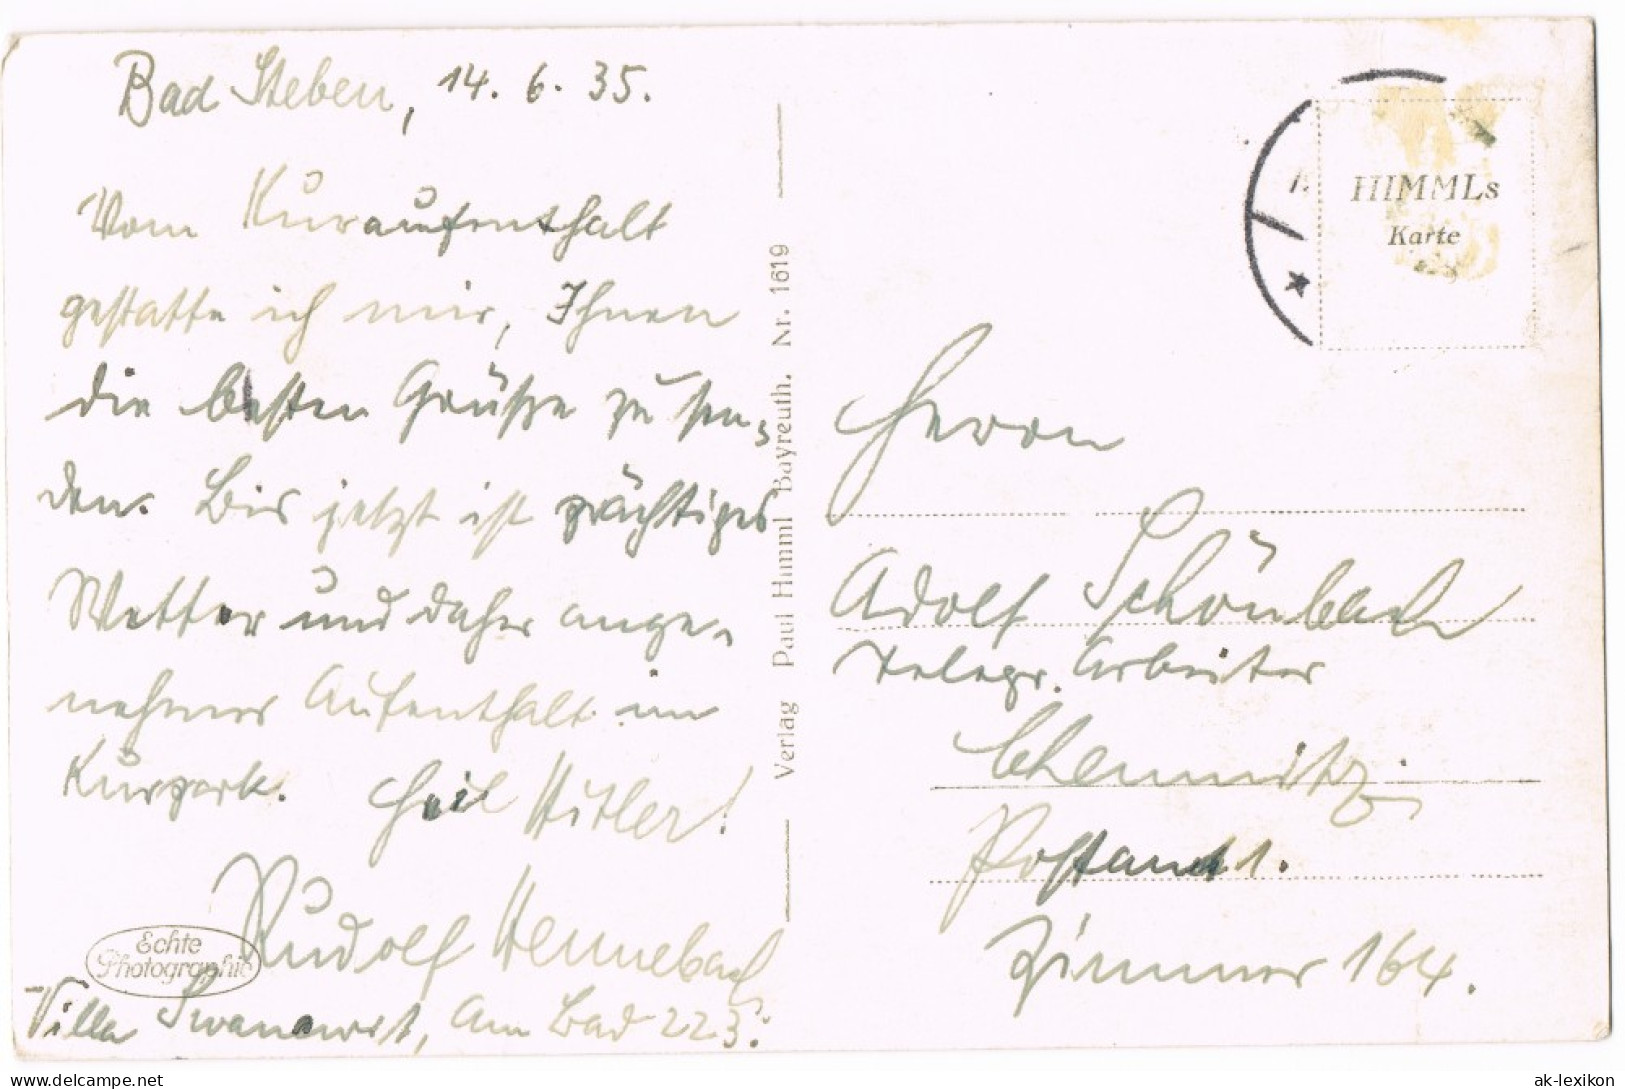 Bad Steben, 14. 6. 35.
Vom Kuraufenthalt
gestatte ich mir, Ihnen
die besten Grüße zu sen-
den. Bis jetzt ist prächtiges
Wetter und daher ange-
nehmer Aufenthalt im
Kurpark. Heil Hitler!
Rudolf Hennebach
Villa Am Bad 223.
Echte
Photographie
Verlag Paul Himml Bayreuth. Nr. 1619
HIMMLs
Karte
Herrn
Adolf Schönbach
Telegr. Arbeiter
Chemnitz
Postamt 1.
Zimmer 164.
ak-lexikon
delcampe.net